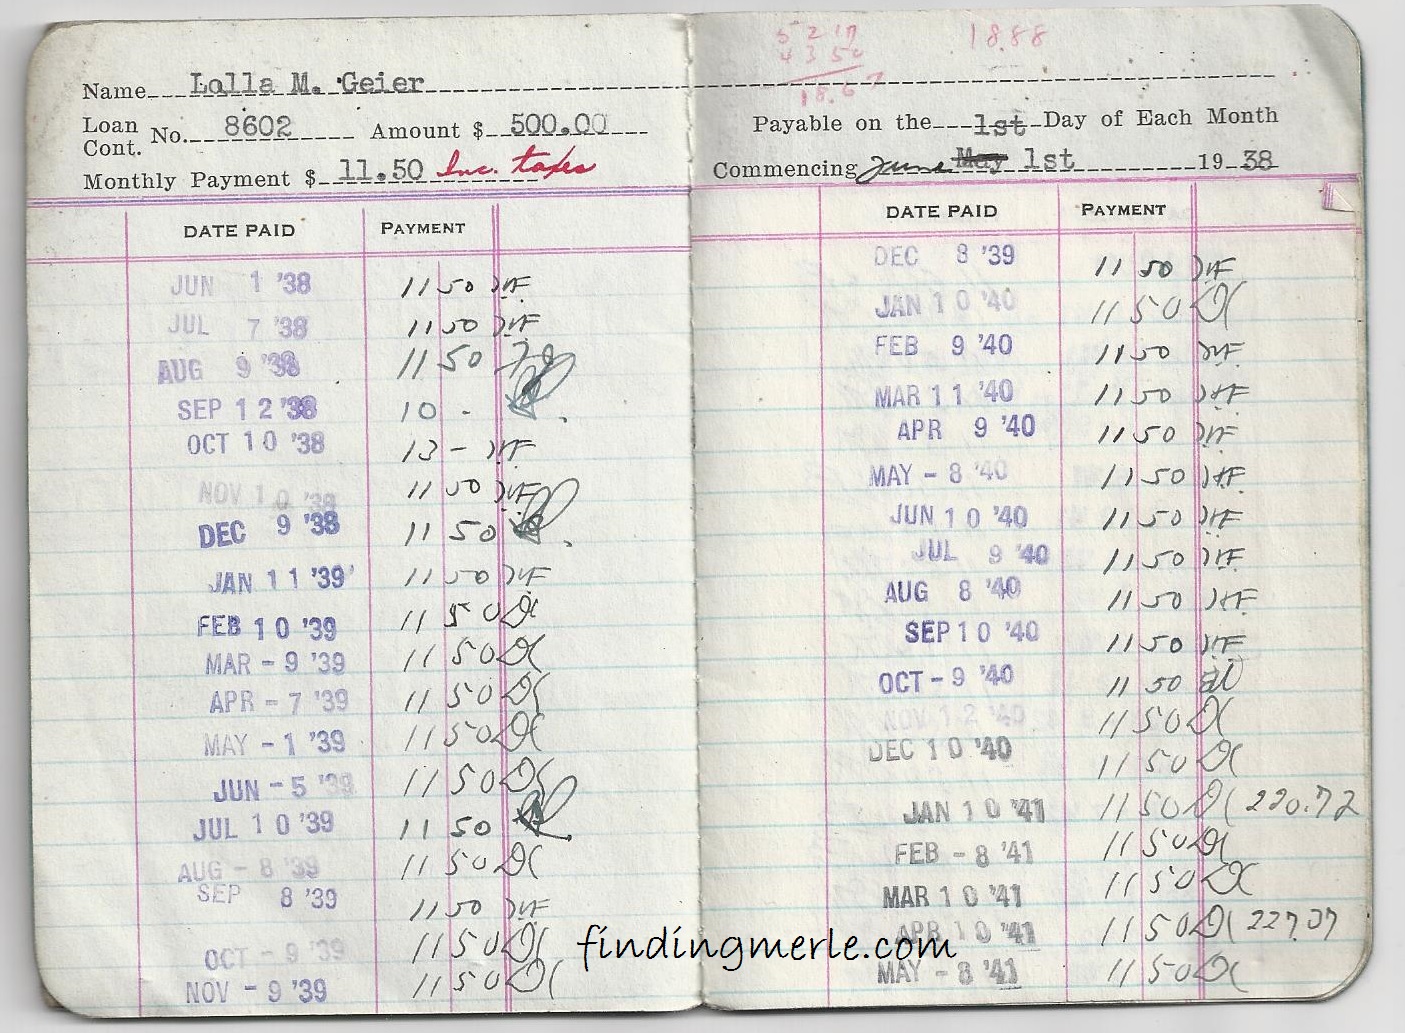 Name Lolla M. Geier
Loan Cont. No. 8602 Amount $ 500.00
Monthly Payment $ 11.50 Inc. taxes
DATE PAID PAYMENT
JUN 1 '38 11 50
JUL 7 '38 11 50
AUG 9 '38 11 50
SEP 12 '38 10 -
OCT 10 '38 13 -
NOV 10 '38 11 50
DEC 9 '38 11 50
JAN 11 '39 11 50
FEB 10 '39 11 50
MAR - 9 '39 11 50
APR - 7 '39 11 50
MAY - 1 '39 11 50
JUN - 5 '39 11 50
JUL 10 '39 11 50
AUG - 8 '39 11 50
SEP 8 '39 11 50
OCT - 9 '39 11 50
NOV - 9 '39 11 50
18.88
Payable on the 1st Day of Each Month
Commencing June May 1st 19 38
DATE PAID PAYMENT
DEC 8 '39 11 50
JAN 10 '40 11 50
FEB 9 '40 11 50
MAR 11 '40 11 50
APR 9 '40 11 50
MAY - 8 '40 11 50
JUN 10 '40 11 50
JUL 9 '40 11 50
AUG 8 '40 11 50
SEP 10 '40 11 50
OCT - 9 '40 11 50
NOV 12 '40 11 50
DEC 10 '40 11 50
JAN 10 '41 11 50 220.72
FEB - 8 '41 11 50
MAR 10 '41 11 50
APR 10 '41 11 50 227.07
MAY - 8 '41 11 50
findingmerle.com